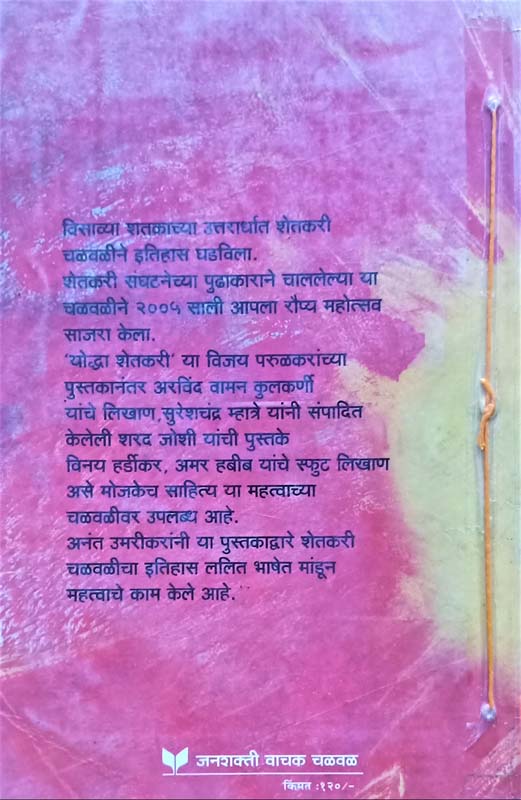 विसाव्या शतकाच्या उत्तरार्धात शेतकरी
चळवळीने इतिहास घडविला.
शेतकरी संघटनेच्या पुढाकाराने चाललेल्या या
चळवळीने २००५ साली आपला रौप्य महोत्सव
साजरा केला.
'योद्धा शेतकरी' या विजय परुळकरांच्या
पुस्तकानंतर अरविंद वामन कुलकर्णी
यांचे लिखाण,सुरेशचंद्र म्हात्रे यांनी संपादित
केलेली शरद जोशी यांची पुस्तके
विनय हर्डीकर, अमर हबीब यांचे स्फुट लिखाण
असे मोजकेच साहित्य या महत्वाच्या
चळवळीवर उपलब्ध आहे.
अनंत उमरीकरांनी या पुस्तकाद्वारे शेतकरी
चळवळीचा इतिहास ललित भाषेत मांडून
महत्वाचे काम केले आहे.
जनशक्ती वाचक चळवळ
किंमत :१२०/-